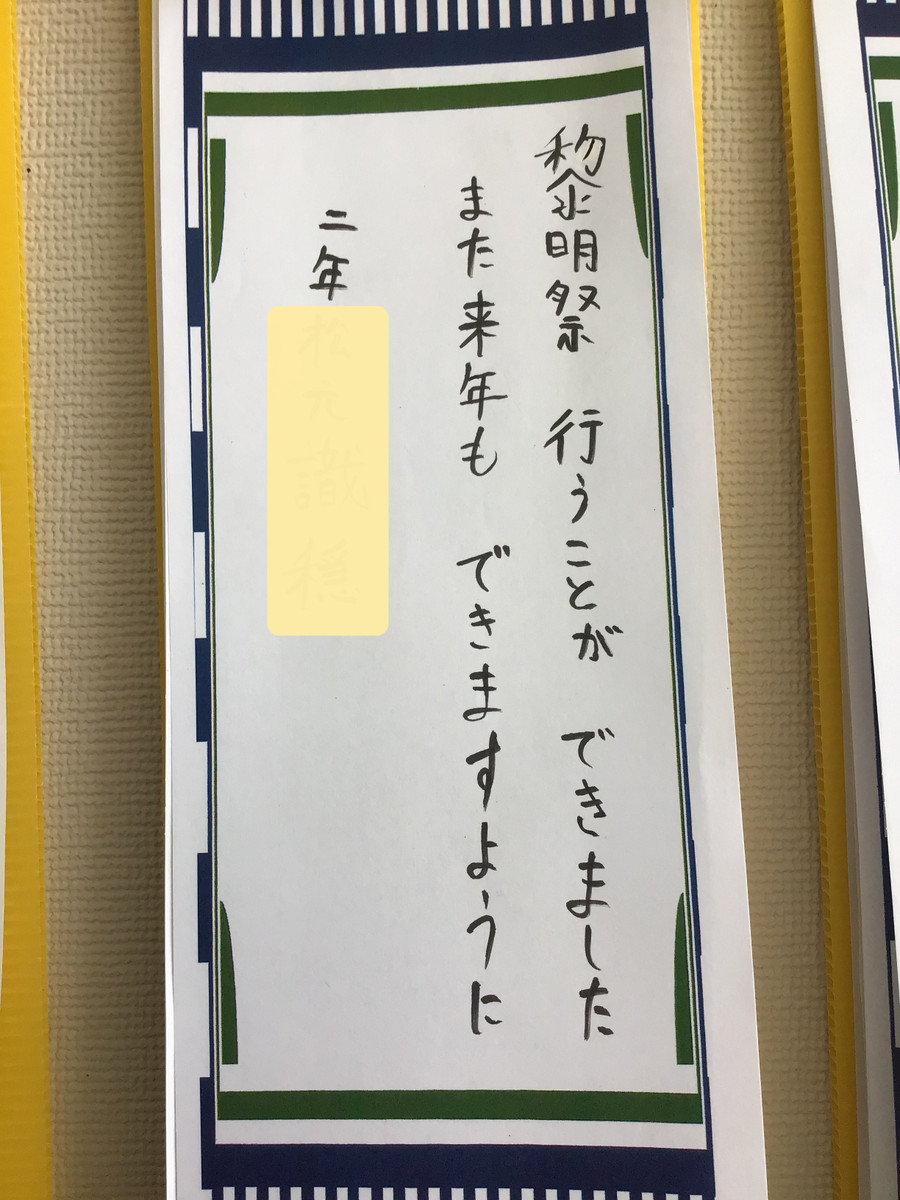 黎明祭 行うことが できました
また来年も できますように
二年